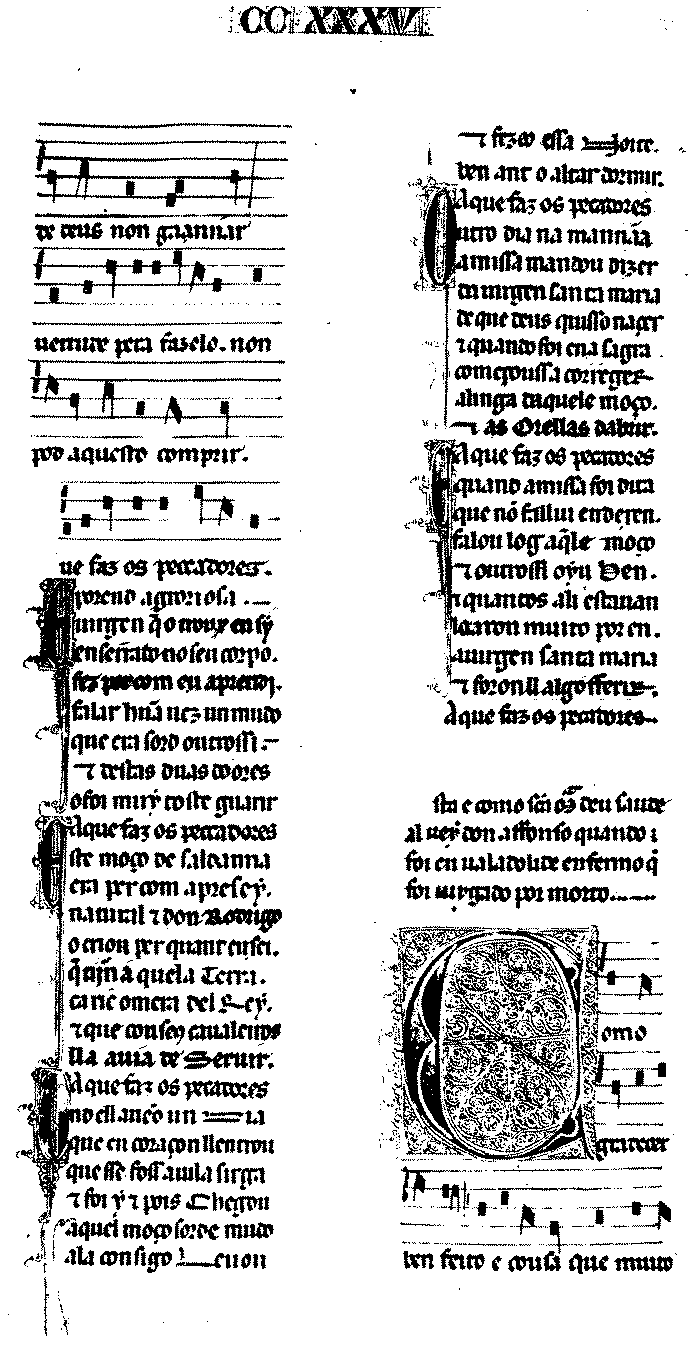 CC XXXV
de deus non gaannar
uertude pera fazelo. non
pod aquesto comprir.
ue faz os peccadores.
porend agloriosa
uirgen q̃ o troux en sy
ensserrado no seu corpo.
fez per com eu aprendi.
falar hũa uez un mudo
que era sordo outrossi.
⁊ destas duas doores
o foi muỹ toste guarir
A que faz os peccadores
ste moço de saldanna
era per com apres ey.
natural ⁊ don Rodrigo
o criou per quant eu sei.
aquela Terra.
ca ric ome era del Rey.
⁊ que conssego caualeiros
lla auia de Seruir.
A que faz os pecadores
no ell ance un
que en coraçon ll entrou
que sse foss a uila sirga
⁊ foi y ⁊ pois Chegou
aquel moço sorde mudo
ala consigo leuou
⁊ fezo essa Noite.
ben ant o altar dormir.
A que faz os pecadores
utro dia na mannãa
a missa mandou dizer
da uirgen santa maria
de que deus quisso naçer
⁊ quando foi ena sagra
começoussa correger
a linga daquele moço.
⁊ as Orellas dabrir.
A que faz os pecadores
quand a missa foi dita
que nõ falliu en deren.
falou log aq̃le moço
⁊ outrossi oyu Ben.
⁊ quantos ali estauan
loaron muito por en.
a uirgen santa maria
⁊ foron ll algo offerir.
A que faz os pecadores
sta e como sc̃a deu saude
al rey don affonso quando
foi en ualadolide enfermo q̃
foi iuygado por morto.
Como
gradecer
ben feito e cousa que muito